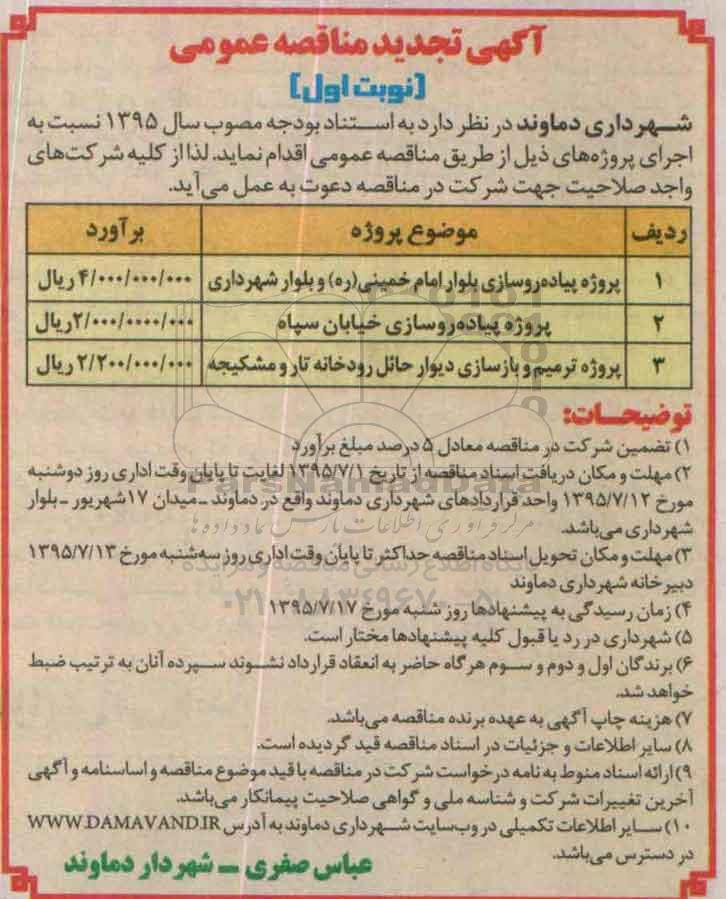 آگهی تجدید مناقصه عمومی
(نوبت اول)
شهرداری دماوند در نظر دارد به استناد بودجه مصوب سال ۱۳۹۵ نسبت به
اجرای پروژه‌های ذیل از طریق مناقصه عمومی اقدام نماید. لذا از کلیه شرکت‌های
واجد صلاحیت جهت شرکت در مناقصه دعوت به عمل می‌آید.
ردیف موضوع پروژه برآورد
۱ پروژه پیاده‌روسازی بلوار امام خمینی(ره) و بلوار شهرداری ۴/۰۰۰/۰۰۰/۰۰۰ ریال
۲ پروژه پیاده‌روسازی خیابان سپاه ۲/۰۰۰/۰۰۰۰/۰۰۰ ریال
۳ پروژه ترمیم و بازسازی دیوار حائل رودخانه تار و مشکیجه ۲/۲۰۰/۰۰۰/۰۰۰ ریال
توضیحات:
۱) تضمین شرکت در مناقصه معادل ۵ درصد مبلغ برآورد
۲) مهلت و مکان دریافت اسناد مناقصه از تاریخ ۱۳۹۵/۷/۱ لغایت تا پایان وقت اداری روز دوشنبه
مورخ ۱۳۹۵/۷/۱۲ واحد قراردادهای شهرداری دماوند واقع در دماوند ـ میدان ۱۷ شهریور ـ بلوار
شهرداری می‌باشد.
۳) مهلت و مکان تحویل اسناد مناقصه حداکثر تا پایان وقت اداری روز سه‌شنبه مورخ ۱۳۹۵/۷/۱۳
دبیرخانه شهرداری دماوند
۴) زمان رسیدگی به پیشنهادها روز شنبه مورخ ۱۳۹۵/۷/۱۷
۵) شهرداری در رد یا قبول کلیه پیشنهادها مختار است.
۶) برندگان اول و دوم و سوم هرگاه حاضر به انعقاد قرارداد نشوند سپرده آنان به ترتیب ضبط
خواهد شد.
۷) هزینه چاپ آگهی به عهده برنده مناقصه می‌باشد.
۸) سایر اطلاعات و جزئیات در اسناد مناقصه قید گردیده است.
۹) ارائه اسناد منوط به نامه درخواست شرکت در مناقصه با قید موضوع مناقصه و اساسنامه و آگهی
آخرین تغییرات شرکت و شناسه ملی و گواهی صلاحیت پیمانکار می‌باشد.
۱۰) سایر اطلاعات تکمیلی در وب‌سایت شهرداری دماوند به آدرس WWW.DAMAVAND.IR
در دسترس می‌باشد.
عباس صفری ـ شهردار دماوند
ParsNamadData
مرکز فرآوری اطلاعات پارس نماد داده ها
پایگاه اطلاع رسانی مناقصه و مزایده
۰۲۱-۸۸۳۴۹۶۷۰-۵